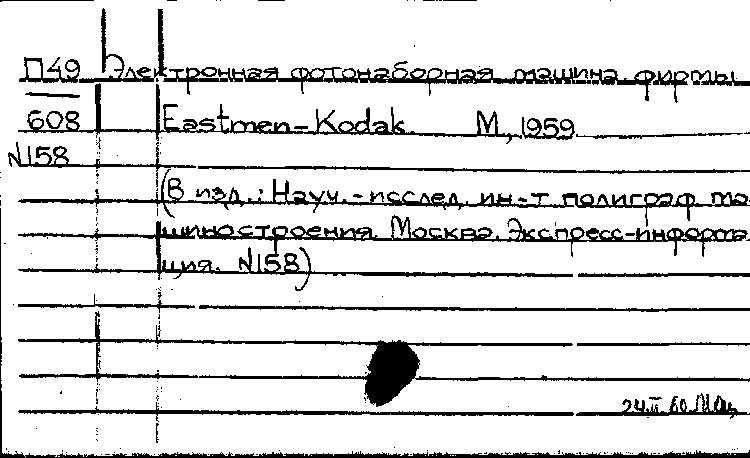 П49 Электронная фотонаборная машина фирмы
608 Eastmen-Kodak. М., 1959
N158
(В изд.: Науч.-исслед. ин-т полиграф. ма-
шиностроения. Москва. Экспресс-информа
ция. N158)
24.II.60.